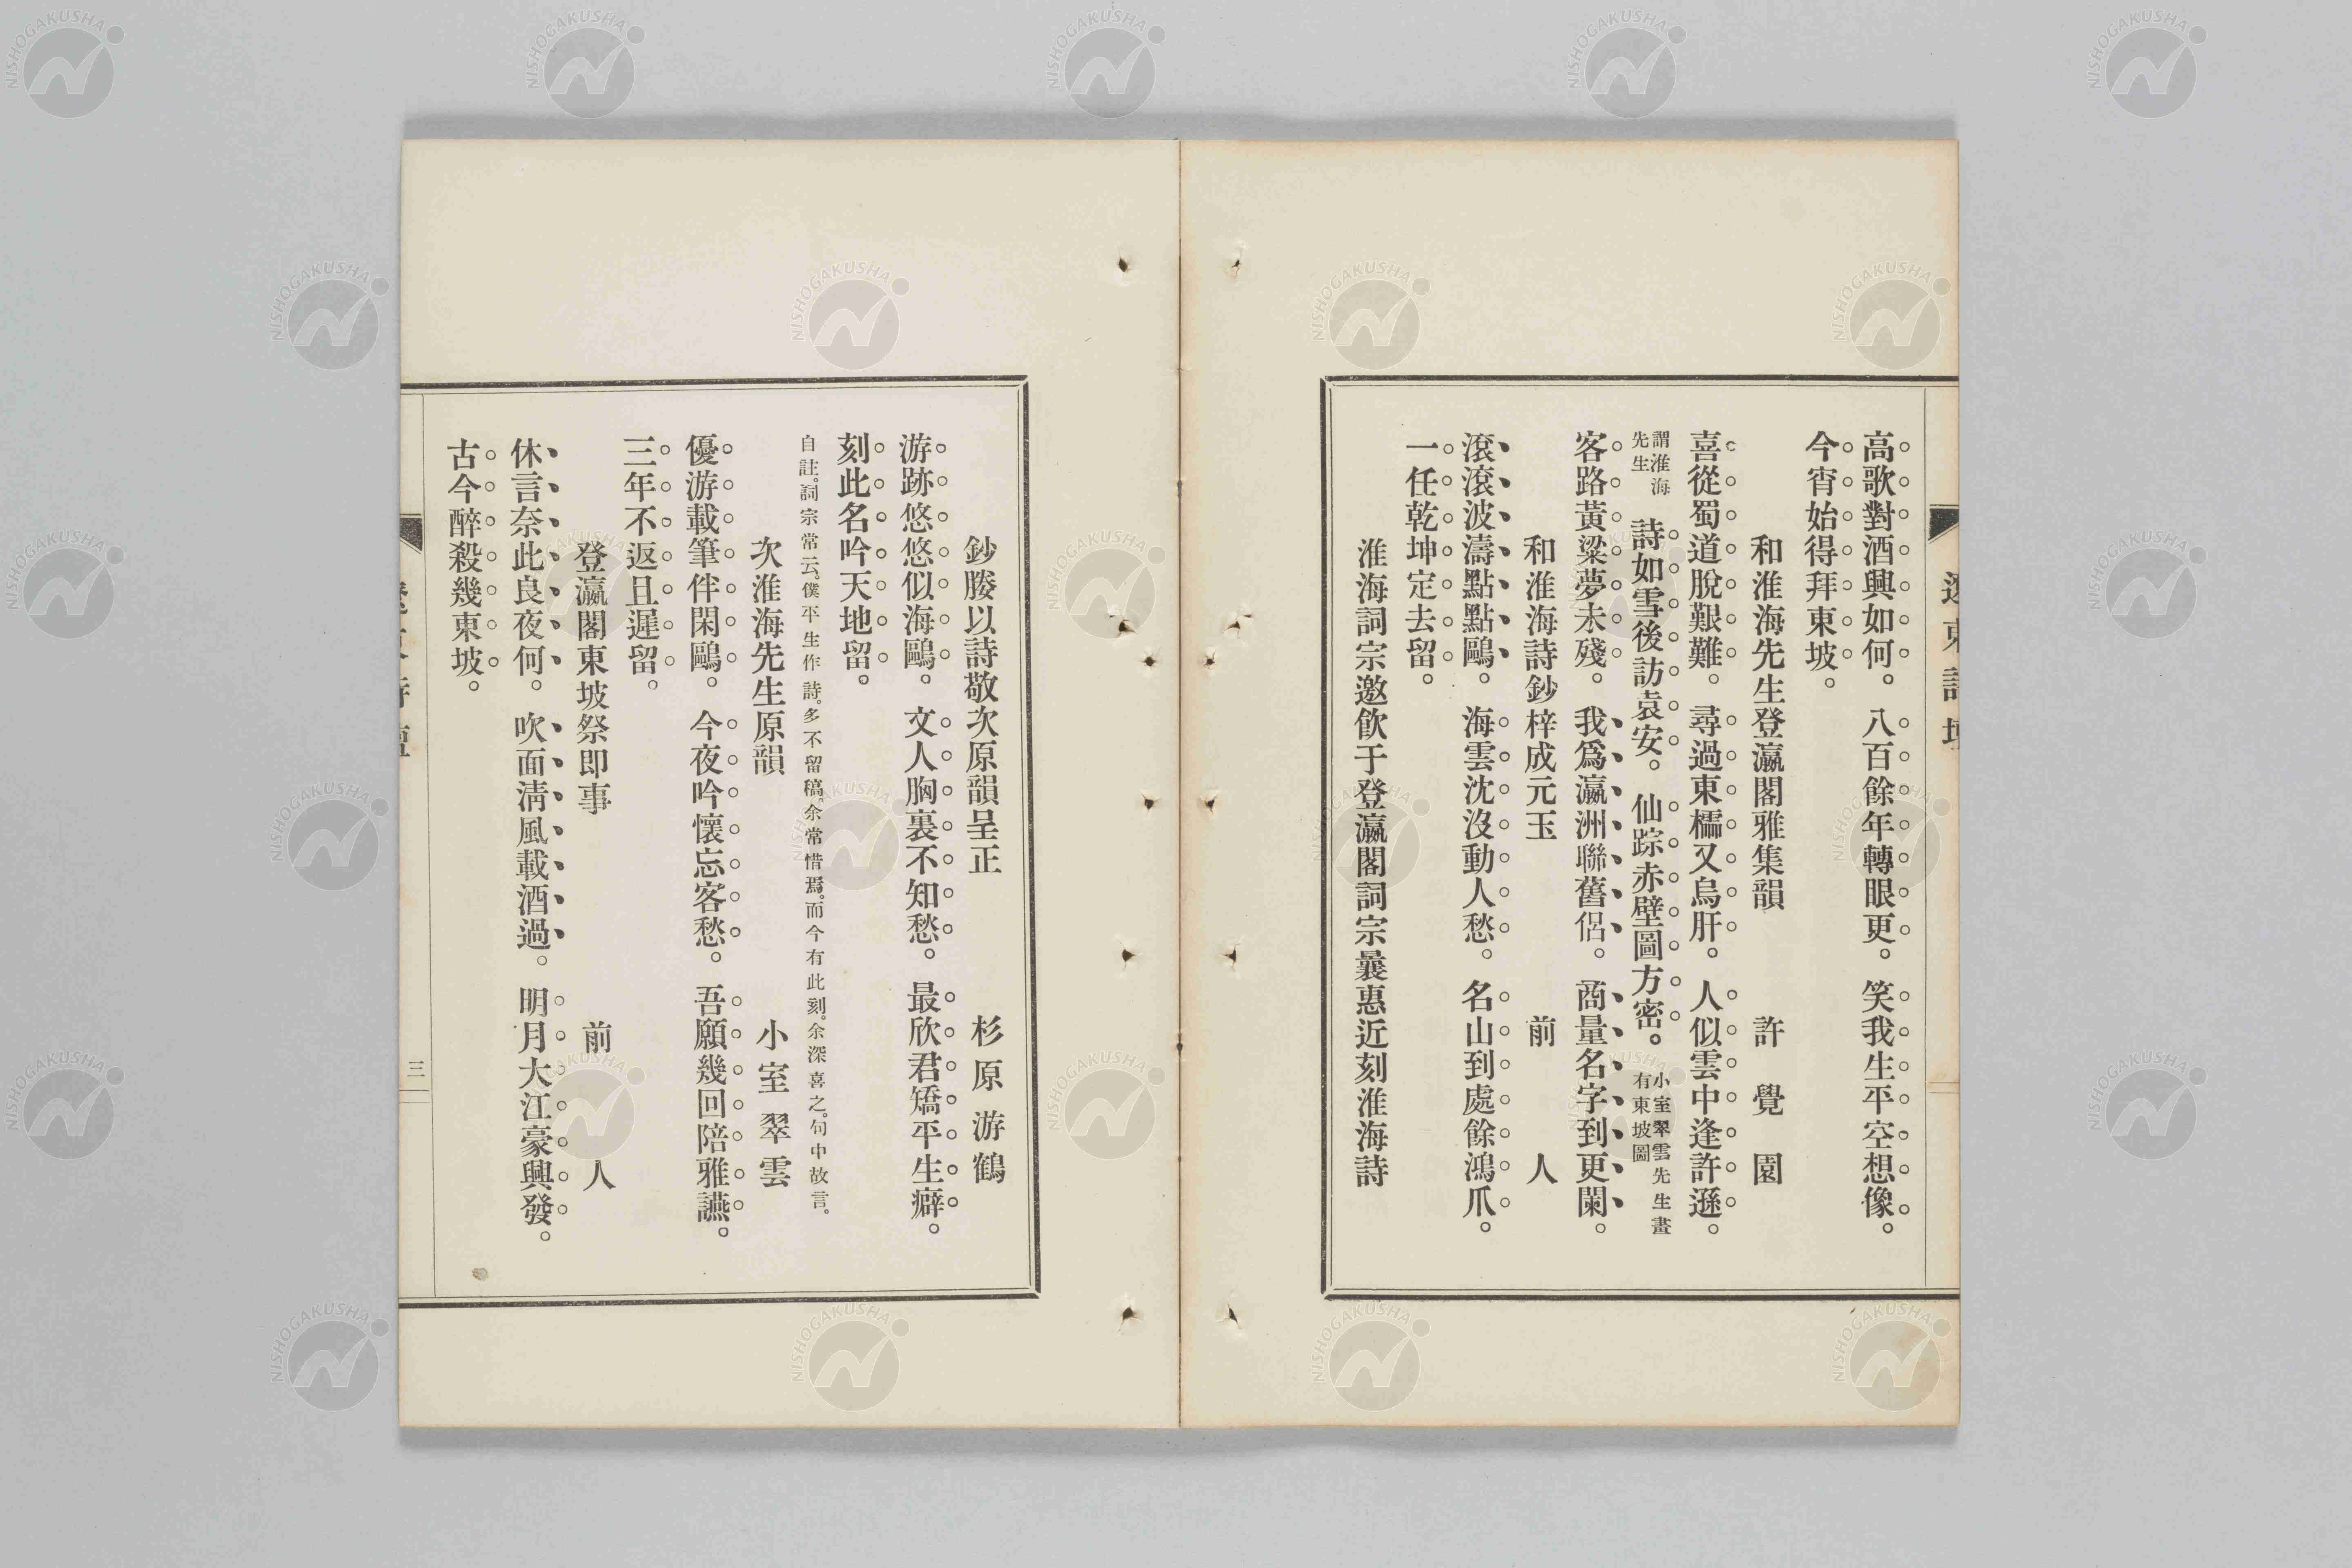 高歌對酒興如何。八百餘年轉眼更。笑我生平空想像。
今宵始得拜東坡。
和淮海先生登瀛閣雅集韻 許覺園
喜從蜀道脫艱難。尋過東櫺又烏肝。人似雲中逢許遜。
謂淮海先生 詩如雪後訪袁安。仙踪赤壁圖方密。小室翠雲先生畫有東坡圖
客路黃粱夢未殘。我爲瀛洲聯舊侶。商量名字到更闌。
和淮海詩鈔梓成元玉 前人
滾滾波濤點點鷗。海雲沈沒動人愁。名山到處餘鴻爪。
一任乾坤定去留。
淮海詞宗邀飲于登瀛閣詞宗曩惠近刻淮海詩
鈔賸以詩敬次原韻呈正 杉原游鶴
游跡悠悠似海鷗。文人胸裏不知愁。最欣君矯平生癖。
刻此名吟天地留。
自註。詞宗常云。僕平生作詩。多不留稿。余常惜焉。而今有此刻。余深喜之。句中故言。
次淮海先生原韻 小室翠雲
優游載筆伴閑鷗。今夜吟懷忘客愁。吾願幾回陪雅讌。
三年不返且遲留。
登瀛閣東坡祭即事 前人
休言奈此良夜何。吹面淸風載酒過。明月大江豪興發。
古今醉殺幾東坡。
三
NISHOGAKUSHA